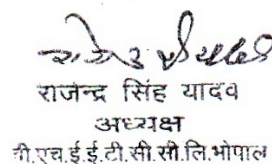 राजेन्द्र सिंह यादव
अध्यक्ष
बी.एच.ई.ई.टी.सी.सी.लि.भोपाल